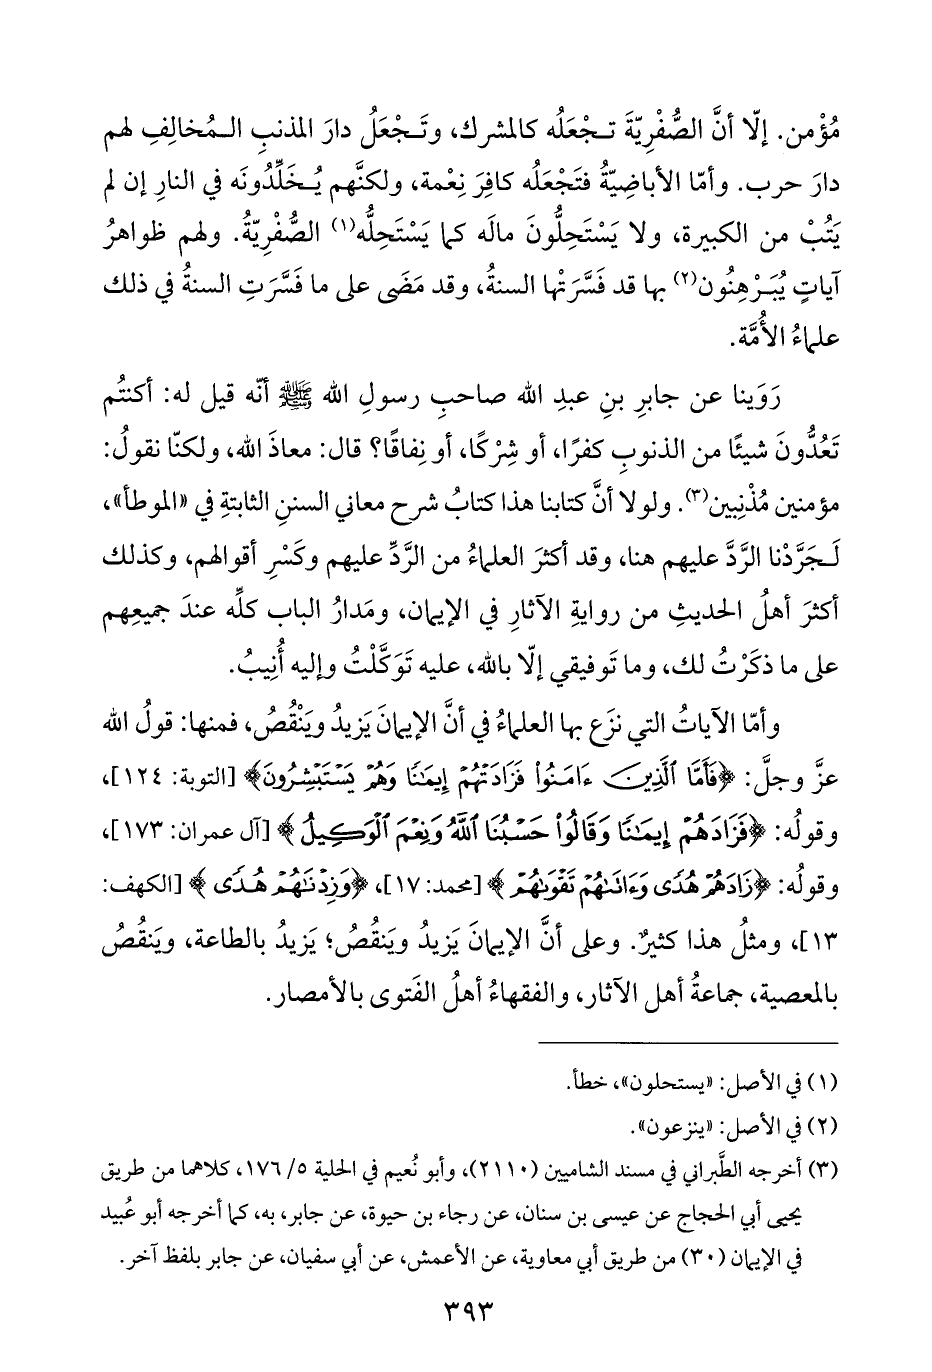 مُؤْمن. إلّا أنَّ الصُّفْرِيّةَ تـجْعَلُه كالمشرك، وتَـجْعَلُ دارَ المذنبِ الـمُخالِفِ لهم
دارَ حرب. وأمّا الأباضِيّةُ فتَجْعَلُه كافِرَ نِعْمة، ولكنَّهم يُـخَلِّدُونَه في النارِ إن لم
يَتُبْ من الكبيرة، ولا يَسْتَحِلُّونَ مالَه كما يَسْتَحِلُّه(١) الصُّفْرِيّةُ. ولهم ظواهرُ
آياتٍ يُبَـرْهِنُون(٢) بها قد فَسَّرَتْها السنةُ، وقد مَضَى على ما فَسَّرَتِ السنةُ في ذلك
علماءُ الأُمَّة.
رَوَينا عن جابرِ بنِ عبدِ الله صاحبِ رسولِ الله ﷺ أنّه قيل له: أكنتُم
تَعُدُّونَ شيئًا من الذنوبِ كفرًا، أو شِرْكًا، أو نِفاقًا؟ قال: معاذَ الله، ولكنّا نقولُ:
مؤمنين مُذْنِبين(٣). ولولا أنَّ كتابنا هذا كتابُ شرح معاني السننِ الثابتةِ في «الموطأ»،
لَـجَرَّدْنا الرَّدَّ عليهم هنا، وقد أكثرَ العلماءُ من الرَّدِّ عليهم وكَسْرِ أقوالهم، وكذلك
أكثرَ أهلُ الحديثِ من روايةِ الآثارِ في الإيمان، ومَدارُ الباب كلِّه عندَ جميعِهم
على ما ذكَرْتُ لك، وما تَوفيقي إلّا بالله، عليه تَوَكَّلْتُ وإليه أُنِيبُ.
وأمّا الآياتُ التي نزَع بها العلماءُ في أنَّ الإيمانَ يَزيدُ ويَنْقُصُ، فمنها: قولُ الله
عزَّ وجلَّ: ﴿فَأَمَّا ٱلَّذِينَ ءَامَنُوا۟ فَزَادَتْهُمْ إِيمَٰنًا وَهُمْ يَسْتَبْشِرُونَ﴾ [التوبة: ١٢٤]،
وقولُه: ﴿فَزَادَهُمْ إِيمَٰنًا وَقَالُوا۟ حَسْبُنَا ٱللَّهُ وَنِعْمَ ٱلْوَكِيلُ﴾ [آل عمران: ١٧٣]،
وقولُه: ﴿زَادَهُمْ هُدًى وَءَاتَىٰهُمْ تَقْوَىٰهُمْ﴾ [محمد: ١٧]، ﴿وَزِدْنَٰهُمْ هُدًى﴾ [الكهف:
١٣]، ومثلُ هذا كثيرٌ. وعلى أنَّ الإيمانَ يَزيدُ ويَنقُصُ؛ يَزيدُ بالطاعة، ويَنقُصُ
بالمعصية، جماعةُ أهل الآثار، والفقهاءُ أهلُ الفَتوى بالأمصار.
(١) في الأصل: «يستحلون»، خطأ.
(٢) في الأصل: «ينزعون».
(٣) أخرجه الطَّبراني في مسند الشاميين (٢١١٠)، وأبو نُعيم في الحلية ٥/ ١٧٦، كلاهما من طريق
يحيى أبي الحجاج عن عيسى بن سنان، عن رجاء بن حيوة، عن جابر، به، كما أخرجه أبو عُبيد
في الإيمان (٣٠) من طريق أبي معاوية، عن الأعمش، عن أبي سفيان، عن جابر بلفظ آخر.
٣٩٣